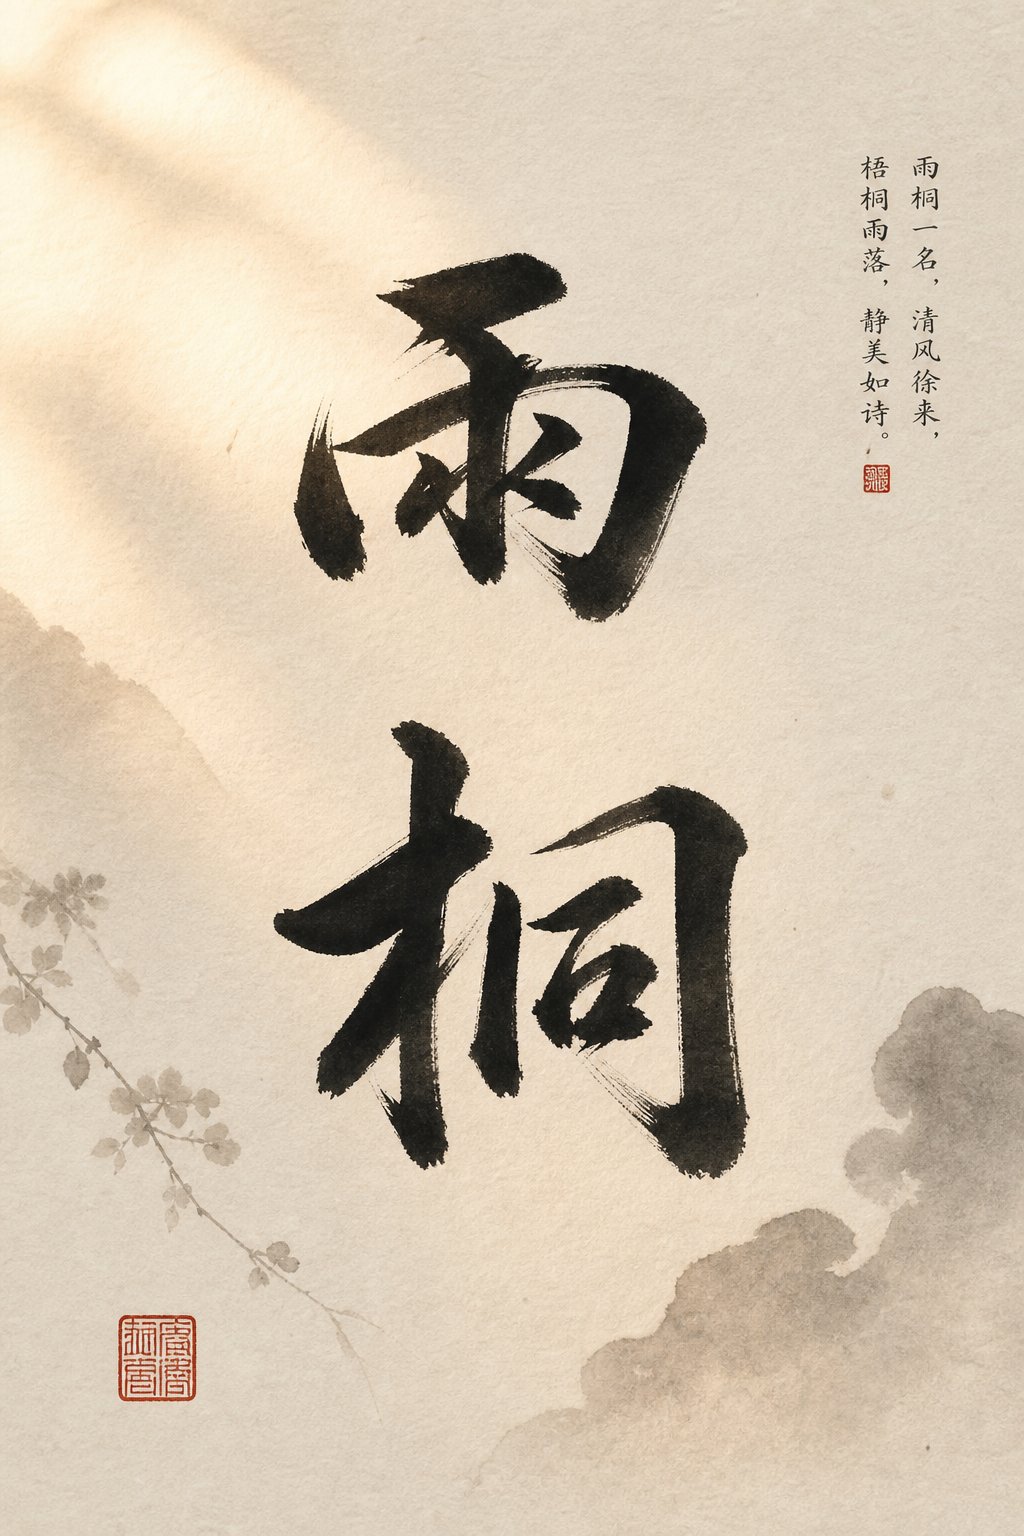 雨桐
雨桐一名，清风徐来，
梧桐雨落，静美如诗。